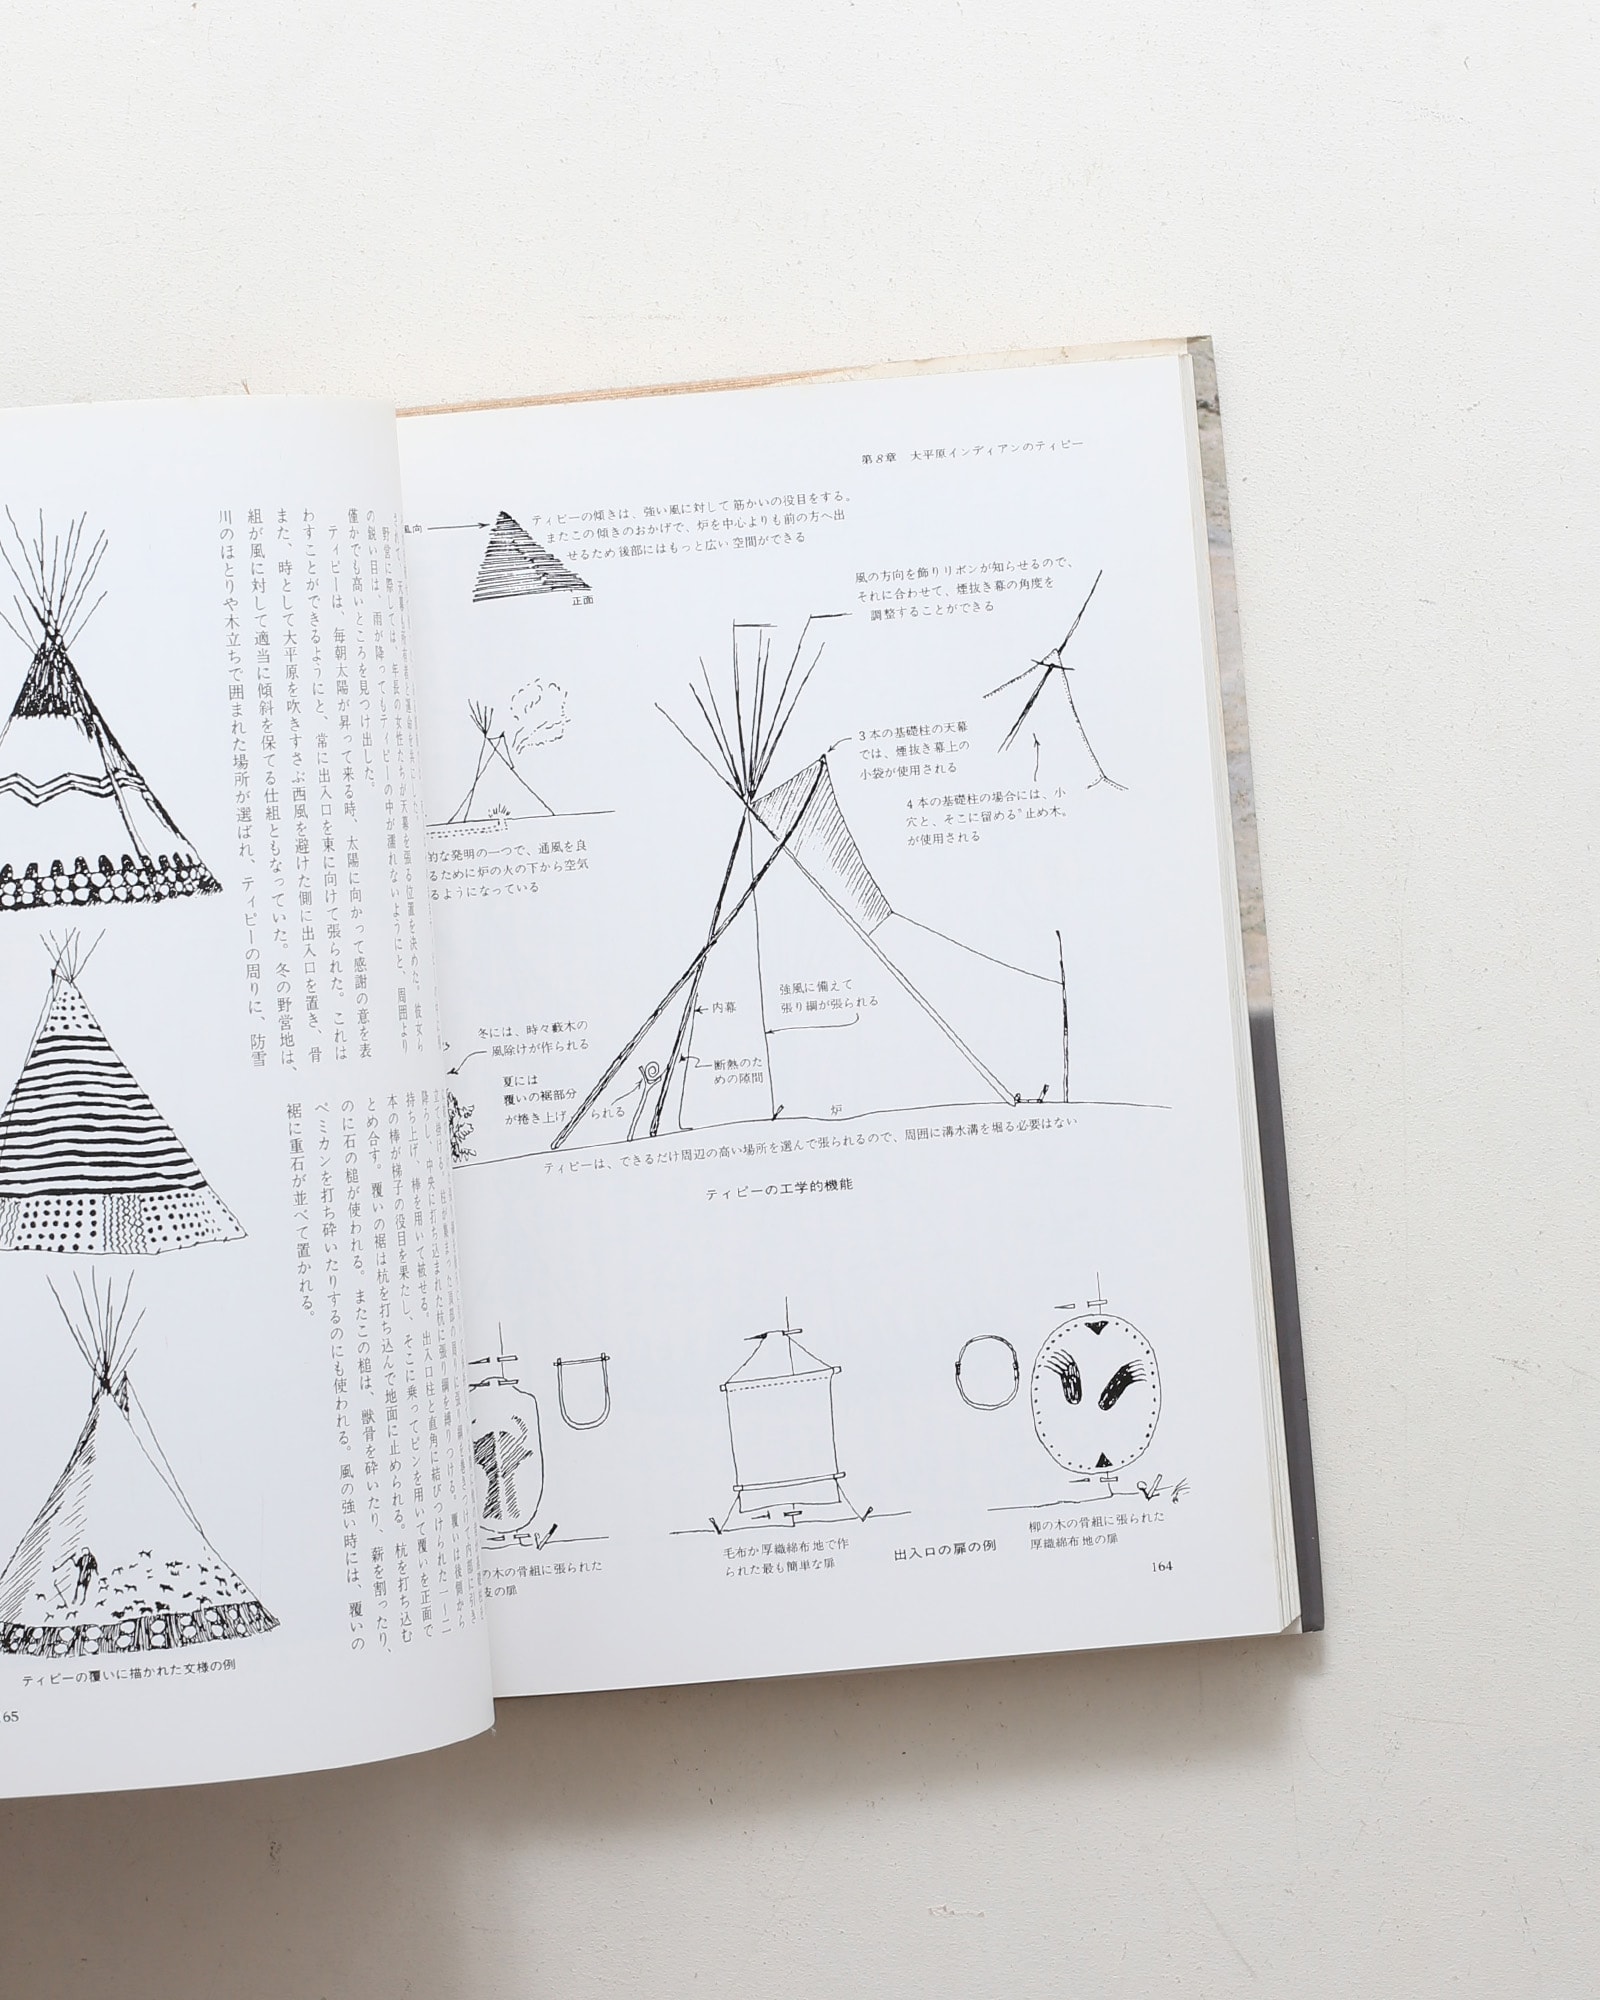 第8章 大平原インディアンのティピー
風向
ティピーの傾きは、強い風に対して筋かいの役目をする。
またこの傾きのおかげで、炉を中心よりも前の方へ出
せるため後部にはもっと広い空間ができる
正面
風の方向を飾りリボンが知らせるので、
それに合わせて、煙抜き幕の角度を
調整することができる
3本の基礎柱の天幕
では、煙抜き幕上の
小袋が使用される
4本の基礎柱の場合には、小
穴と、そこに留める"止め木"
が使用される
的な発明の一つで、通風を良
るために炉の火の下から空気
るようになっている
強風に備えて
張り綱が張られる
内幕
断熱のた
めの隙間
冬には、時々藪木の
風除けが作られる
夏には
覆いの裾部分
が捲き上げられる
炉
ティピーは、できるだけ周辺の高い場所を選んで張られるので、周囲に溝水溝を堀る必要はない
ティピーの工学的機能
の木の骨組に張られた
皮の扉
毛布か厚織綿布地で作
られた最も簡単な扉
出入口の扉の例
柳の木の骨組に張られた
厚織綿布地の扉
164
野営に際しては、年長の女性たちが天幕を張る位置を決めた。彼女ら
の鋭い目は、雨が降ってもティピーの中が濡れないようにと、周囲より
僅かでも高いところを見つけ出した。
ティピーは、毎朝太陽が昇って来る時、太陽に向かって感謝の意を表
わすことができるようにと、常に出入口を東に向けて張られた。これは
また、時として大平原を吹きすさぶ西風を避けた側に出入口を置き、骨
組が風に対して適当に傾斜を保てる仕組ともなっていた。冬の野営地は、
川のほとりや木立ちで囲まれた場所が選ばれ、ティピーの周りに、防雪
降ろし、中央に打ち込まれた杭に張り綱を縛りつける。覆いは後側から
持ち上げ、棒を用いて被せる。出入口柱と直角に結びつけられた一－二
本の棒が梯子の役目を果たし、そこに乗ってピンを用いて覆いを正面で
とめ合す。覆いの裾は杭を打ち込んで地面に止められる。杭を打ち込む
のに石の槌が使われる。またこの槌は、獣骨を砕いたり、薪を割ったり、
ペミカンを打ち砕いたりするのにも使われる。風の強い時には、覆いの
裾に重石が並べて置かれる。
ティピーの覆いに描かれた文様の例
65